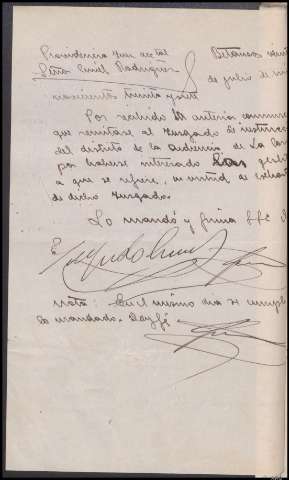 Providencia Juez acctal
Señor Emiel Rodriguez
Betanzos
de julio de mil
novecientos treinta y siete
Por recibido la anterior comunic
que remitase al Juzgado de instrucc
del distrito de la Audiencia de La Cor
por haberse interesado
a que se refiere, en virtud de exhort
de dicho Juzgado.
Lo mandó y firma S.S. D
Nota: En el mismo dia se cumple
lo mandado. Doy fé